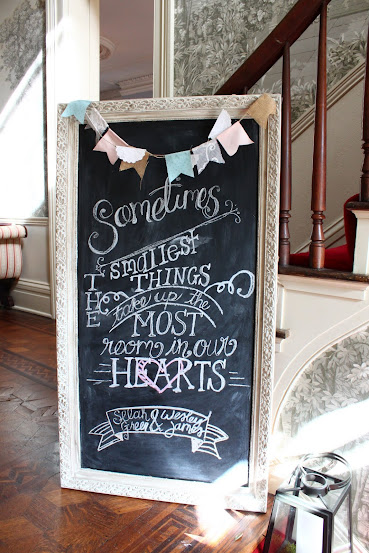 Sometimes
THE smallest
THINGS
take up the
MOST
room in our
HEARTS
Selah & Wesley
Green & James